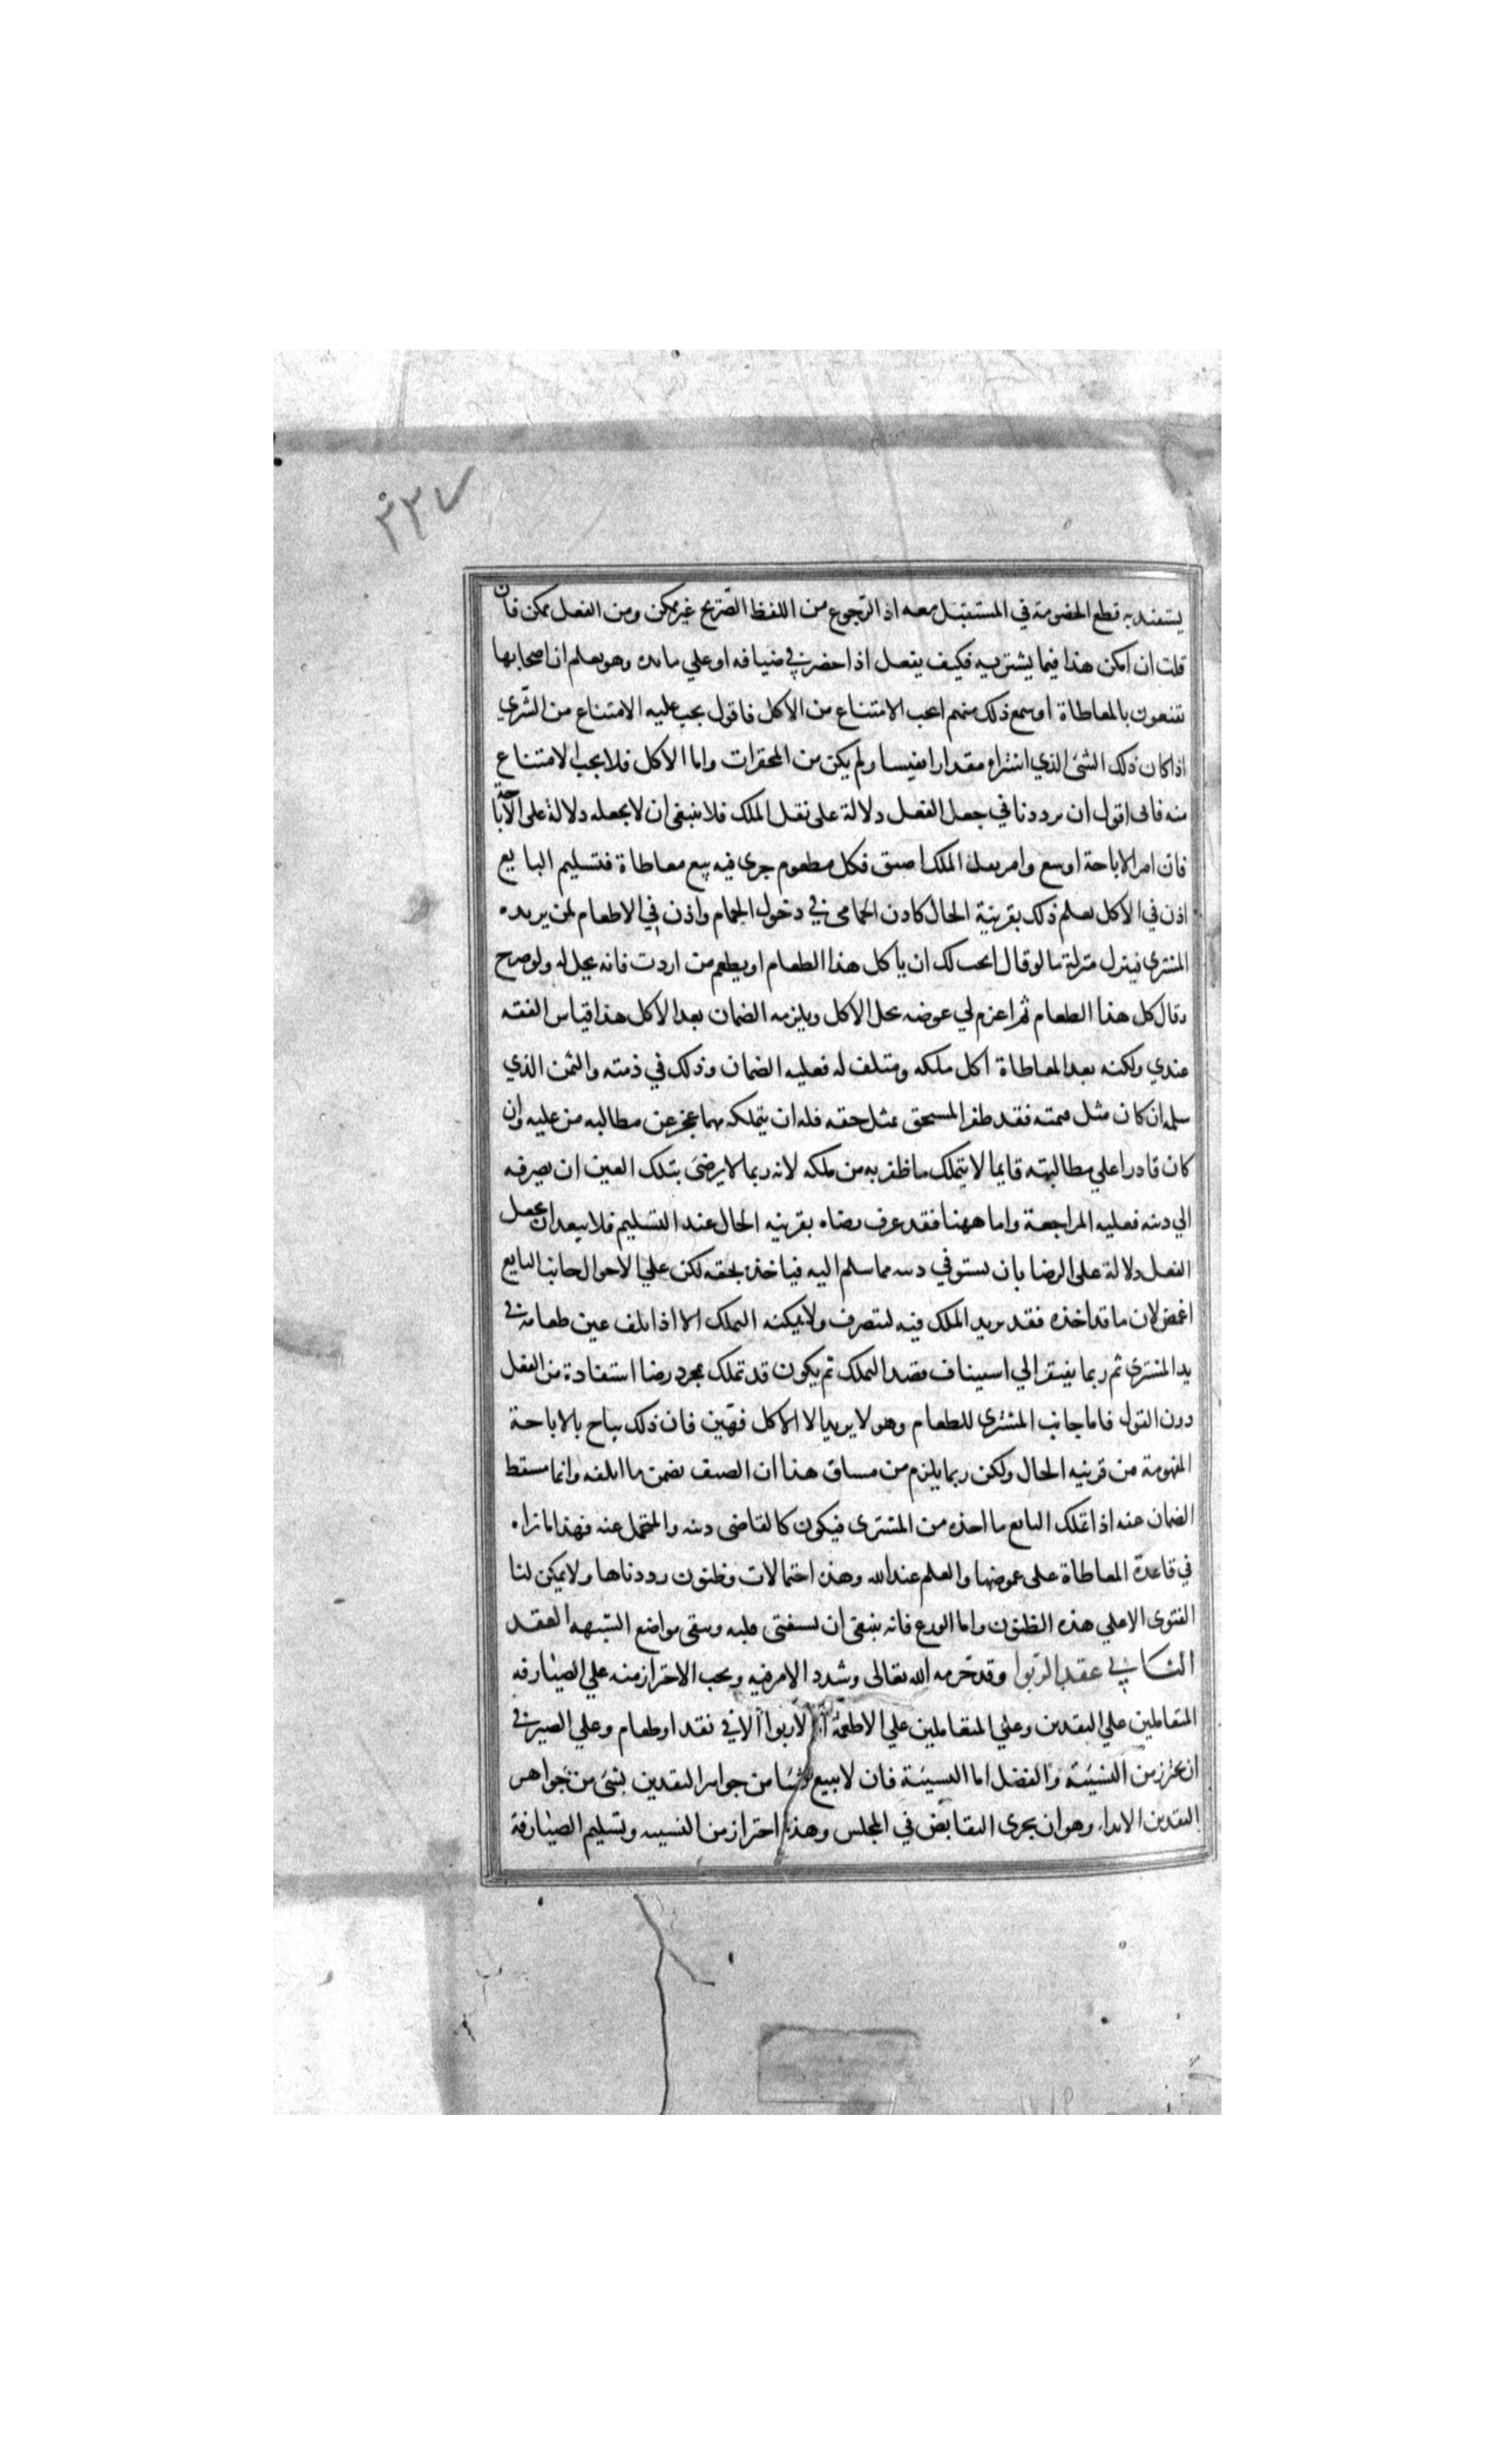 ٣٣٧
يستفند به قطع الخصومة في المستقبل معه اذ الرّجوع من اللفظ الصّريح غير ممكن ومن الفعل ممكن فان
قلت ان امكن هذا فيما يشتريه فكيف يفعل اذا حضر في ضيافه او علي مايده وهو يعلم ان اصحابها
يقنعون بالمعاطاة او سمع ذلك منهم ايجب الامتناع من الاكل فاقول يجب عليه الامتناع من الشّري
اذا كان ذلك الشئ الذي اشتراه مقدارا نفيسا ولم يكن من المحقرات واما الاكل فلا يجب الامتناع
منه فانى اقول ان ترددنا في جعل الفعل دلالة على نقل الملك فلا ينبغى ان لا يجعله دلالة على الاباحة
فان امر الاباحة اوسع وامر نقل الملك اضيق فكل مطعوم جرى فيه بيع معاطاة فتسليم البايع
اذن في الاكل يعلم ذلك بقرينة الحال كاذن الحمامى في دخول الحمام واذن في الاطعام لمن يريده
المشترى فينزل منزلة ما لو قال ابحت لك ان ياكل هذا الطعام او يطعم من اردت فانه يحل له ولو صرح
وقال كل هذا الطعام ثم اغرم لي عوضه يحل الاكل ويلزمه الضمان بعد الاكل هذا قياس الفقه
عندي ولكنه بعد المعاطاة اكل ملكه ومتلف له فعليه الضمان وذلك في ذمته والثمن الذي
سلمه ان كان مثل قيمته فقد ظفر المستحق بمثل حقه فله ان يتملكه مهما عجز عن مطالبه من عليه وان
كان قادرا علي مطالبته فايما لا يتملك ما ظفر به من ملكه لانه ربما لا يرضى بتلك العين ان يصرفه
الي دينه فعليه المراجعة واما ههنا فقد عرف رضاه بقرينه الحال عند التسليم فلا يبعد ان يجعل
الفعل دلالة على الرضا بان يستوفي دينه مما سلم اليه فياخذه بحقه لكن علي الاحوال جانب البايع
اغمض لان ما قد اخذه فقد يريد الملك فيه ليتصرف ولا يمكنه التملك الا اذا تلف عين طعامه في
يد المشترى ثم ربما يفتقر الي استيناف قصد التملك ثم يكون قد تملك بمجرد رضا استفادة من الفعل
دون القول فاما جانب المشترى للطعام وهو لا يريد الا الاكل فهيّن فان ذلك يباح بالاباحة
المفهومة من قرينه الحال ولكن ربما يلزم من مساق هذا ان الضيف يضمن ما اتلفه وانما سقط
الضمان عنه اذا تملك البايع ما اخذه من المشترى فيكون كالقاضى دينه والمتحمل عنه فهذا ما نراه
في قاعدة المعاطاة على غموضها والعلم عند الله وهذه احتمالات وظنون رددناها ولا يمكن لنا
الفتوى الا علي هذه الظنون واما الورع فانه ينبغى ان يستفتى قلبه ويتقى مواضع الشبهه العقد
الثاني في عقد الرّبوا وقد حرمه الله تعالى وشدد الامر فيه ويجب الاحتراز منه علي الصيارفه
المتعاملين علي النقدين وعلي المتعاملين علي الاطعمة اذ لا ربوا الا في نقد او طعام وعلي الصيرفي
ان يحترز من النسيئة والفضل اما النسيئة فان لا يبيع شيئا من جواهر النقدين بشئ من جواهر
النقدين الا يدا وهو ان يجرى التقابض في المجلس وهذا احتراز من النسيه وتسليم الصيارفة